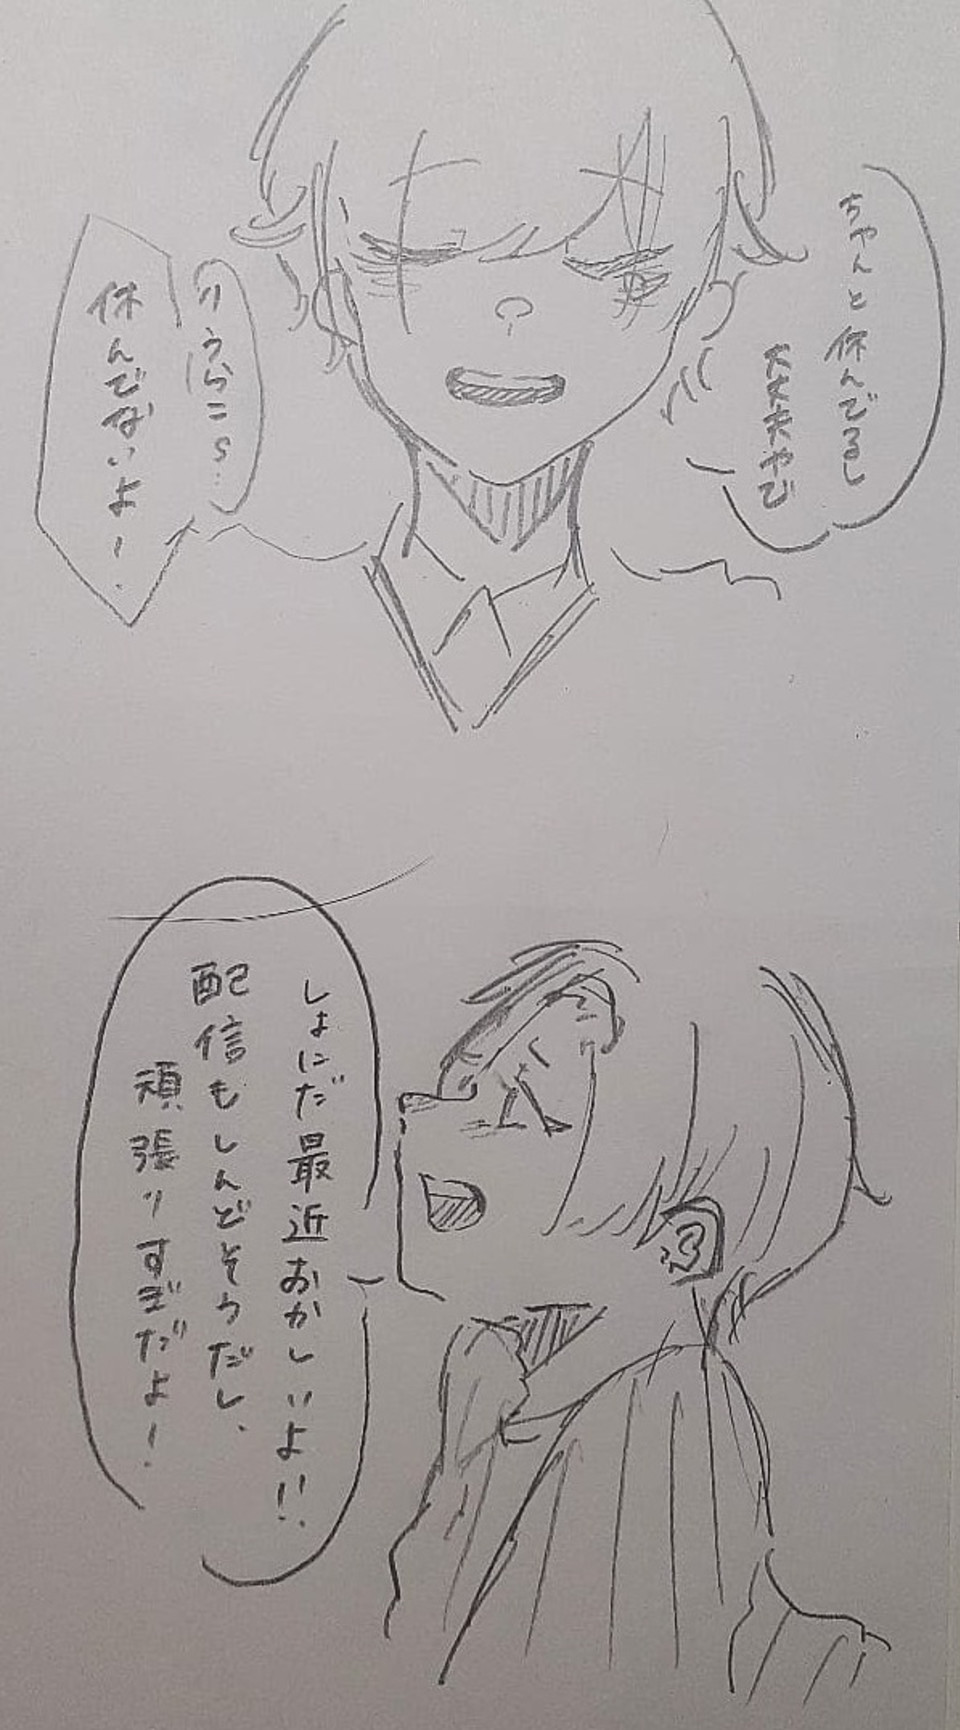 ちゃんと休んでるし
大丈夫やで
りうらこら…
休んでないよー.
しょにだ最近おかしいよ!!
配信もしんどそうだし、
頑張りすぎだよ!